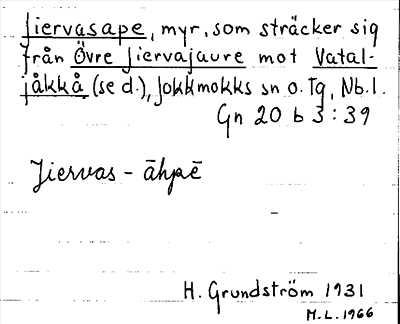 Jiervasape, myr, som sträcker sig
från Övre Jiervajaure mot Vatal-
jåkkå (se d.), Jokkmokks sn o. Tg, Nb. l.
Gn 20 b 3 : 39
Jiervas - āhpē
H. Grundström 1931
M.L. 1966